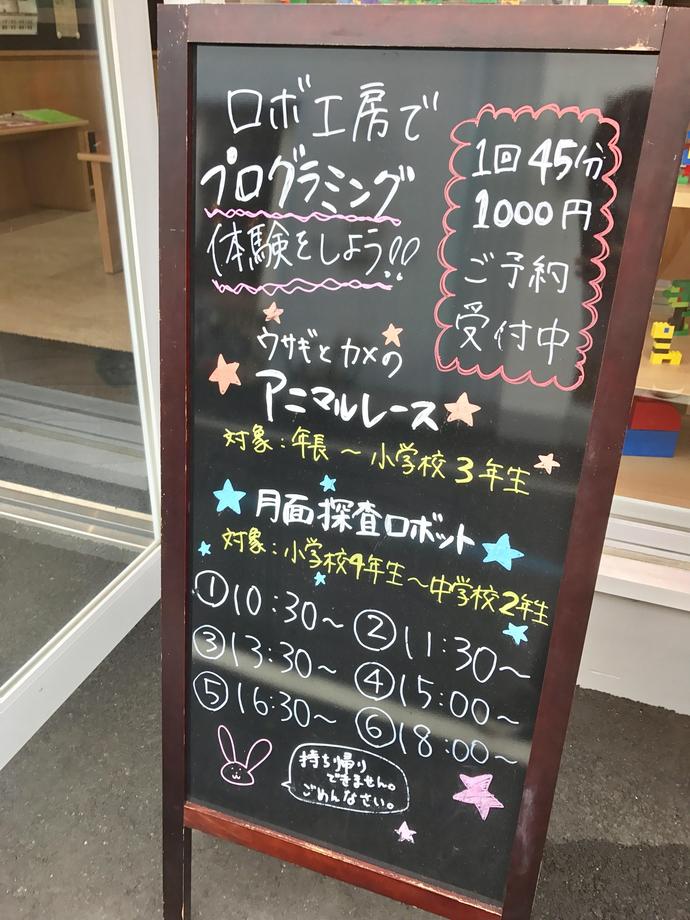 ロボ工房で
プログラミング
体験をしよう!!
1回45分
1000円
ご予約
受付中
ウサギとカメの
アニマルレース
対象:年長～小学校3年生
月面探査ロボット
対象:小学校4年生～中学校2年生
①10:30～ ②11:30～
③13:30～ ④15:00～
⑤16:30～ ⑥18:00～
持ち帰り
できません。
ごめんなさい。